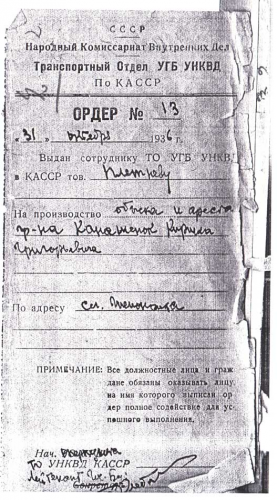 СССР
Народный Комиссариат Внутренних Дел
Транспортный Отдел УГБ УНКВД
По КАССР
ОРДЕР № 13
„31" октября 1936 г.
Выдан сотруднику ТО УГБ УНКВД
в КАССР тов. Петрову
На производство обыска и ареста
гр-на Канашенок Кирилла
Григорьевича
По адресу
ПРИМЕЧАНИЕ: Все должностные лица и граж
дане обязаны оказывать лицу,
на имя которого выписан ор
дер полное содействие для ус-
пешного выполнения.
Нач.
ТО УНКВД КАССР
Лейтенант